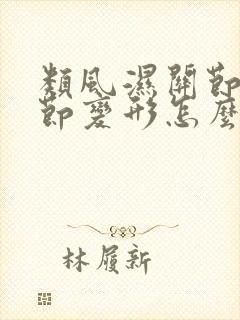 類風濕關節
節變形怎麼
林履新